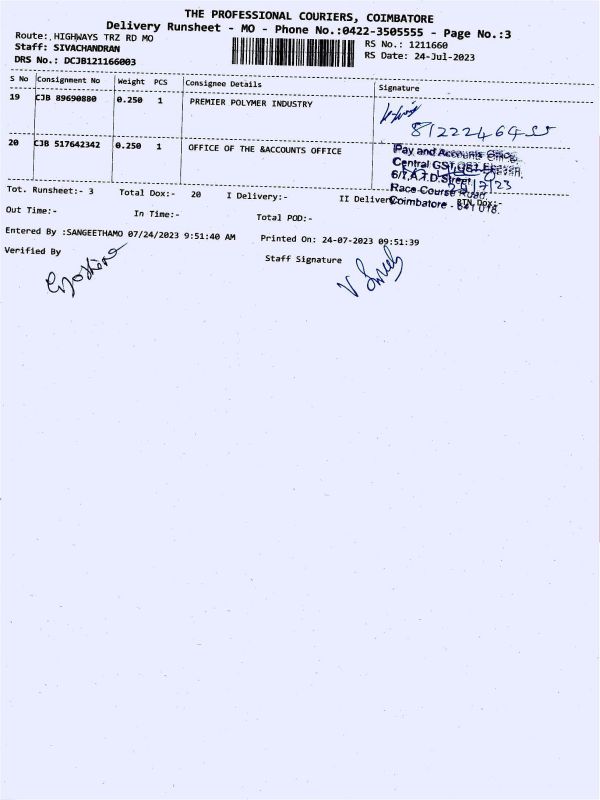 THE PROFESSIONAL COURIERS, COIMBATORE
Delivery Runsheet - MO - Phone No.:0422-3505555 - Page No.:3
Route: HIGHWAYS TRZ RD MO
RS No.: 1211660
Staff: SIVACHANDRAN
RS Date: 24-Jul-2023
DRS No.: DCJB121166003
S No Consignment No Weight PCS Consignee Details Signature
19 CJB 89690880 0.250 1 PREMIER POLYMER INDUSTRY
20 CJB 517642342 0.250 1 OFFICE OF THE &ACCOUNTS OFFICE
Pay and Accounts Office,
Central GST, GST Bhavan,
6/7, A.T.D. Street
Race Course Road,
Coimbatore - 641 018.
Tot. Runsheet:- 3 Total Dox:- 20 I Delivery:- II Delivery:- RTN Dox:-
Out Time:- In Time:- Total POD:-
Entered By :SANGEETHAMO 07/24/2023 9:51:40 AM Printed On: 24-07-2023 09:51:39
Verified By Staff Signature